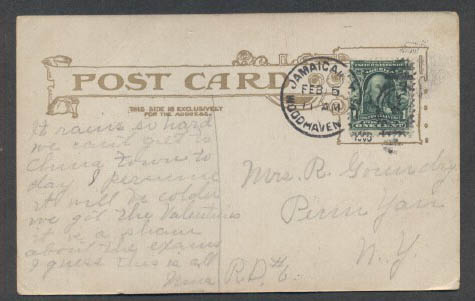 POST CARD
THIS SIDE IS EXCLUSIVELY
FOR THE ADDRESS.
JAMAICA
FEB 5
AM
WOODHAVEN
It rains so hard
we can't get to
down to
day I
it will be colder
we got the Valentines
it is a shame
about the exams
I guess this is all
Mrs. R.
Penn Yan
N.Y.
R.D. #6.